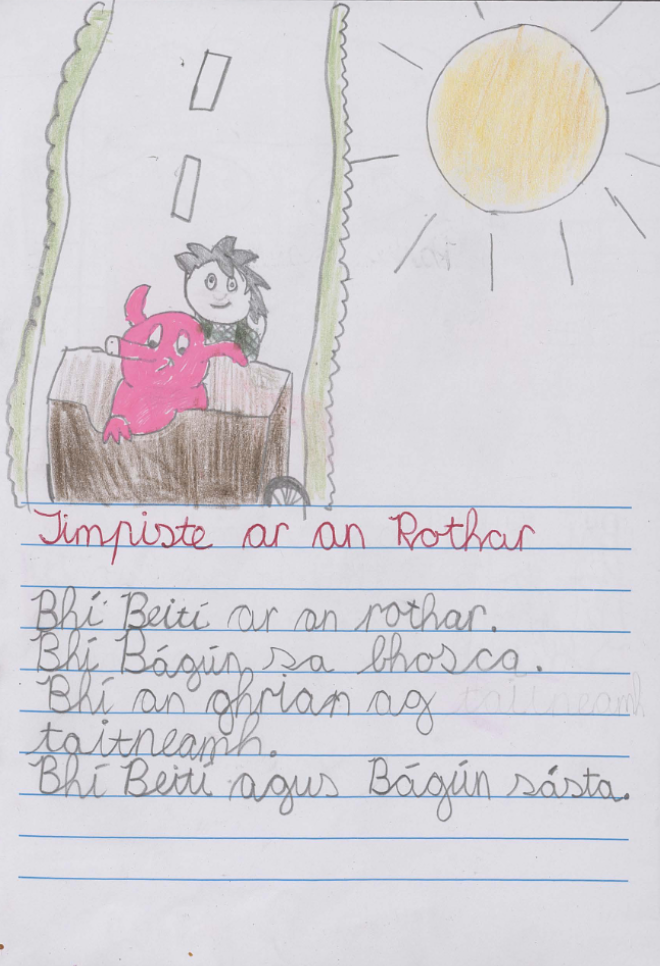 Timpiste ar an Rothar
Bhí Beití ar an rothar.
Bhí Bágún sa bhosca.
Bhí an ghrian ag taitneamh
taitneamh.
Bhí Beití agus Bágún sásta.